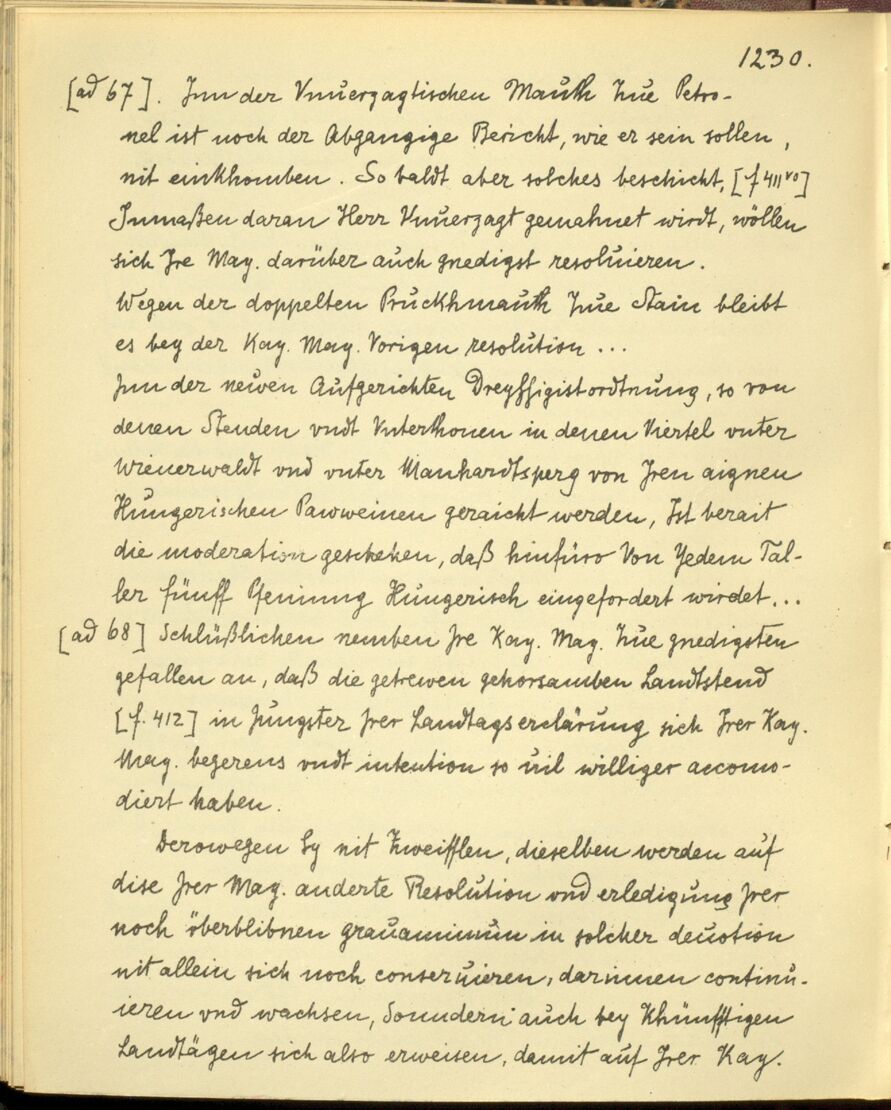 1230.
[ad 67]. Jnn der Vnuerzagtischen Mauth Zue Petro-
nel ist noch der Abgangige Bericht, wie er sein sollen,
nit einkhomben. So baldt aber solches beschicht, [f 411 vo]
Jnmaßen daran Herr Vnuerzagt gemahnet wirdt, wöllen
sich Jre May. darüber auch gnedigst resoluieren.
Wegen der doppelten Pruckhmauth Zue Stain bleibt
es bey der Kay. May. Vorigen resolution ...
Jnn der newen Aufgerichten Dreyssigistordtnung, so von
denen Stenden vndt Vnterthonen in denen Viertel vnter
Wienerwaldt vnd vnter Manhardtsperg von Jren aignen
Hungerischen Pawweinen geraicht werden, Ist berait
die moderation geschehen, daß hinfüro Von Yedem Tal-
ler fünff Pfening Hungerisch eingefordert wirdet...
[ad 68] Schlüßlichen nemben Jre Kay. May. Zue gnedigsten
gefallen an, daß die getrewen gehorsamben Landtstend
[f. 412] in Jüngster Jrer Landtagserclärung sich Jrer Kay.
May. begerens vndt intention so uil williger accomo-
diert haben.
Derowegen Sy nit Zweifflen, dieselben werden auf
dise Jrer May. anderte Resolution vnd erledigung Jrer
noch überblibnen grauaminum in solcher deuotion
nit allein sich noch conseruieren, darinnen continu-
ieren vnd wachsen, Sonndern auch bey Khünfftigen
Landtägen sich also erweisen, damit auf Jrer Kay.